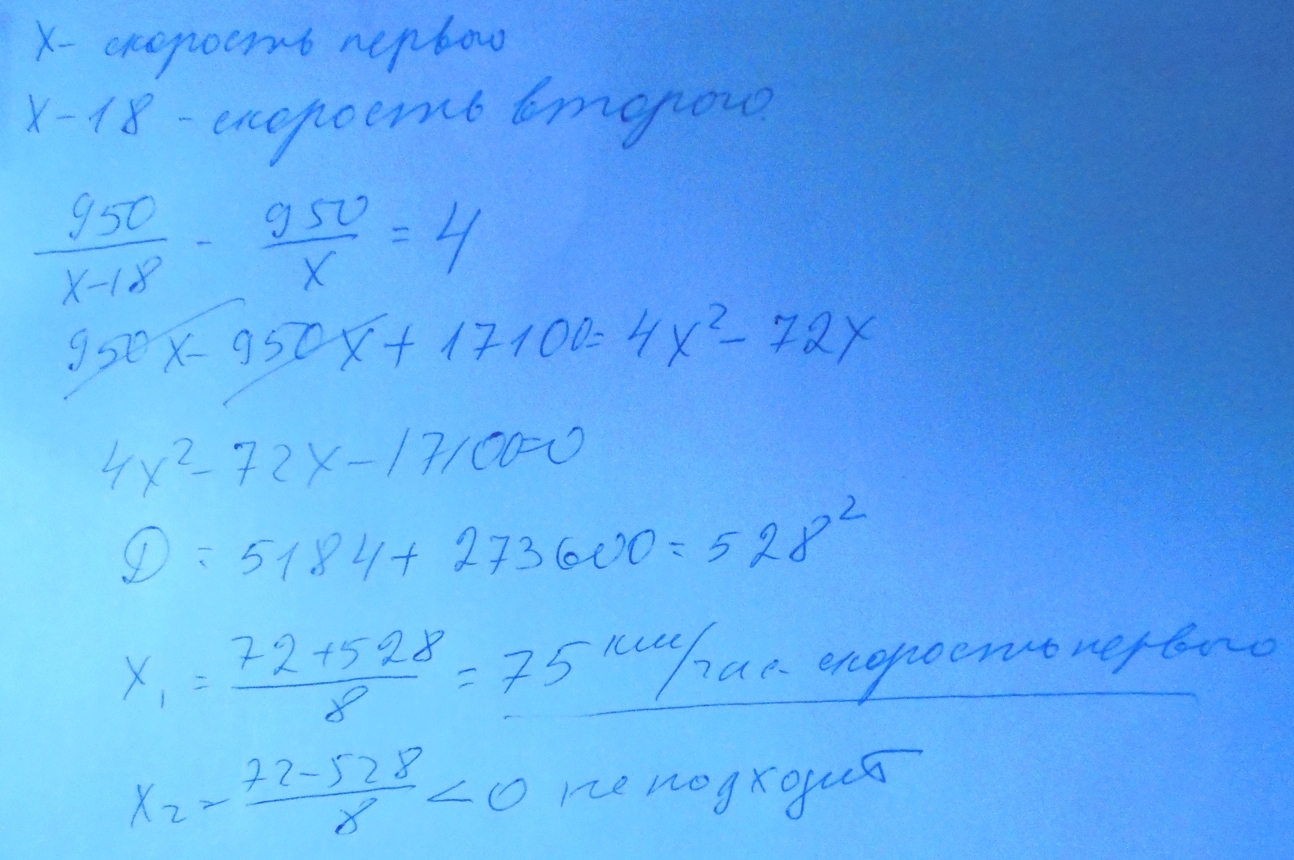 x - скорость первого
x - 18 - скорость второго
950/(x-18) - 950/x = 4
950x - 950x + 17100 = 4x² - 72x
4x² - 72x - 17100=0
D = 5184 + 273600 = 528²
x₁ = (72+528)/8 = 75 км/час - скорость первого
x₂ = (72-528)/8 < 0 не подходит